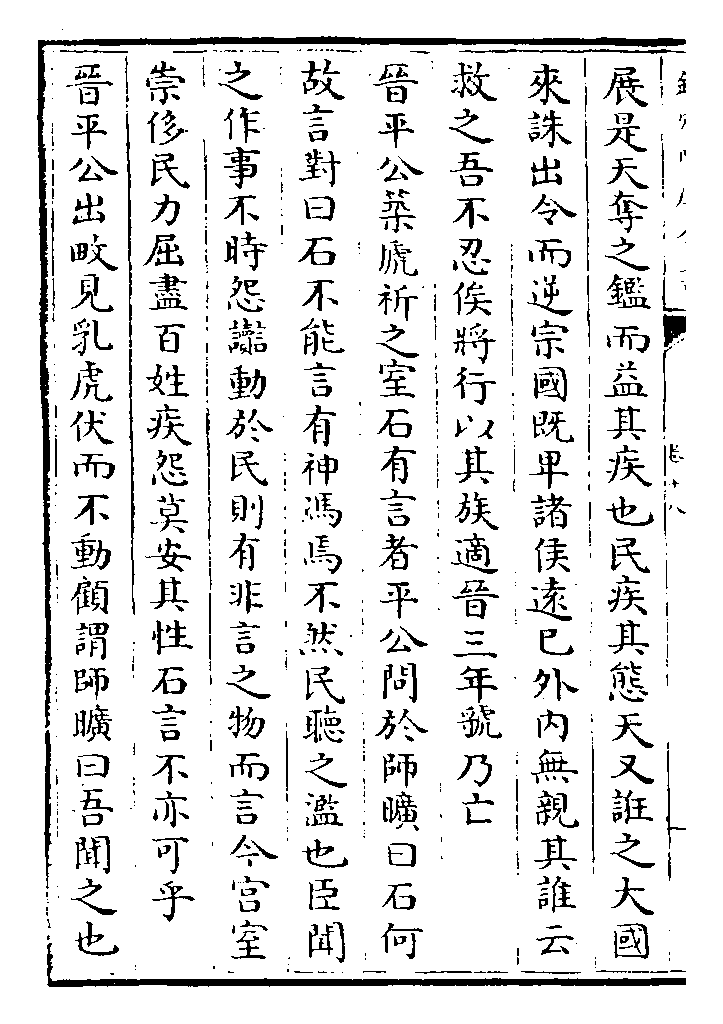 展是天奪之鑑而益其疾也民疾其態天又誑之大國
來誅出令而逆宗國既卑諸侯遠已外内無親其誰云
救之吾不忍俟將行以其族適晉三年虢乃亡
晉平公築虒祈之室石有言者平公問於師曠曰石何
故言對曰石不能言有神馮焉不然民聽之濫也臣聞
之作事不時怨讟動於民則有非言之物而言今宫室
崇侈民力屈盡百姓疾怨莫安其性石言不亦可乎
晉平公出畋見乳虎伏而不動顧謂師曠曰吾聞之也
卷十八